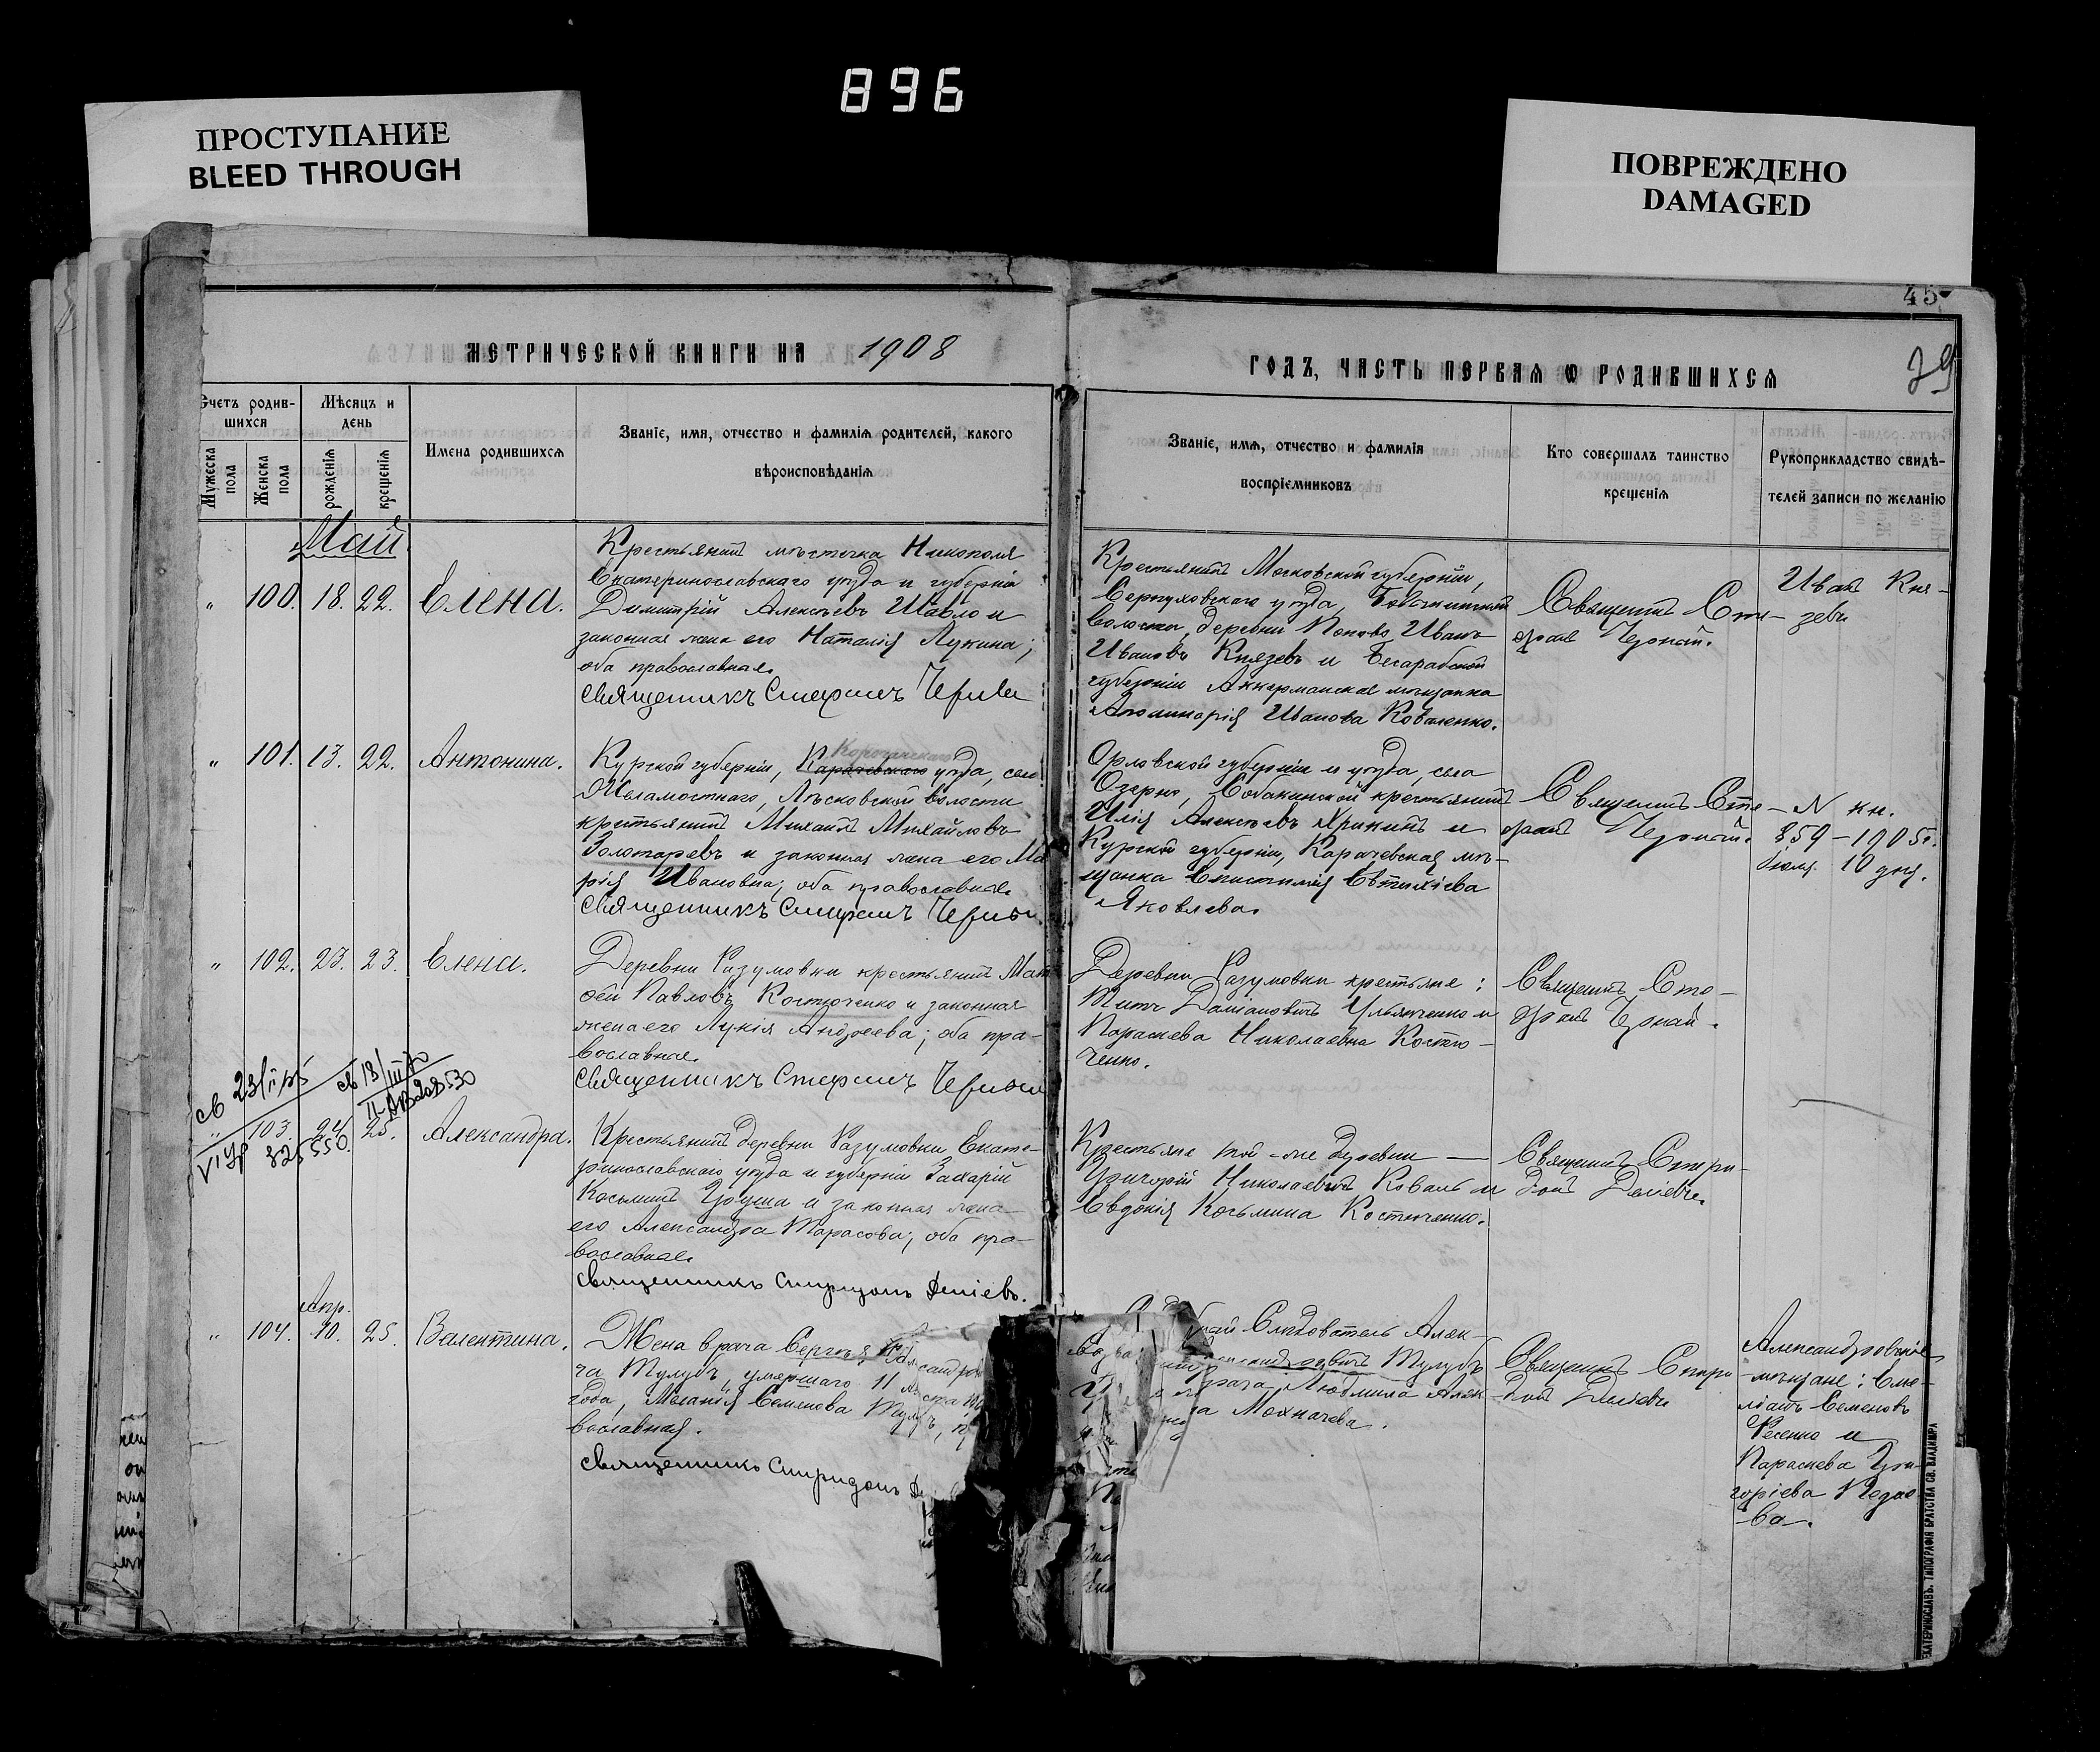 896
ПРОСТУПАНИЕ
BLEED THROUGH
ПОВРЕЖДЕНО
DAMAGED
45
МЕТРИЧЕСКОЙ КНИГИ НА 1908
ГОДЪ, ЧАСТЬ ПЕРВАЯ Ѡ РОДИВШИХСЯ
79
Счетъ родив-
шихся
Мѣсяцъ и
день
Мужеска
пола
Женска
пола
рожденія
крещенія
Имена родившихся
Званіе, имя, отчество и фамилія родителей, какого
вѣроисповѣданія
Званіе, имя, отчество и фамилія
воспріемниковъ
Кто совершалъ таинство
крещенія
Рукоприкладство свидѣ-
телей записи по желанію
Май.
" 100. 18. 22. Елена.
Крестьянинъ мѣстечка Никополя
Екатеринославскаго уѣзда и губерніи
Димитрій Алексѣевъ Шавло и
законная жена его Наталія Лукина;
оба православные.
Священникъ Стефанъ
Крестьянинъ Московской губерніи,
Серпуховскаго уѣзда,
волости, деревни Попово Иванъ
Ивановъ Князевъ и Бесарабской
губерніи Аккерманская мѣщанка
Аполинарія Иванова Коваленко.
Священникъ Сте-
фанъ Чернай.
Иванъ Кня-
зевъ
" 101. 13. 22. Антонина.
Курской губерніи, Карачевскаго уѣзда, села
волости
крестьянинъ Михаилъ Михайловъ
Золотаревъ и законная жена его Ма
рія Ивановна; оба православные.
Священникъ Стефанъ
Орловской губерніи и уѣзда, села
Озерно, Собакинской крестьянинъ
Илія Алексѣевъ и
Курской губерніи, Карачевская мѣ-
щанка Епистимія Евтихіева
Яковлева.
Священникъ Сте-
фанъ Чернай.
N кн.
359 - 1905г.
Іюля 10 дня.
" 102. 23. 23. Елена.
Деревни Разумовки крестьянинъ Мат
ѳей Павловъ Костюченко и законная
жена его Лукія Андреева; оба пра-
вославные.
Священникъ Стефанъ
Деревни Разумовки крестьяне:
Титъ Даміановичъ Ульянченко и
Параскева Николаевна Костю-
ченко.
Священникъ Сте-
фанъ Чернай.
св 23/
св 18/III
II-АВ 208530
VI УР 825550
" 103. 24. 25. Александра.
Крестьянинъ деревни Разумовки Екате-
ринославскаго уѣзда и губерніи Захарій
Косьминъ Груша и законная жена
его Александра Тарасова; оба пра-
вославные.
Священникъ Спиридонъ Деліевъ.
Крестьяне той-же деревни —
Григорій Николаевичъ Коваль и
Евдокія Косьмина Костюченко.
Священникъ Спири-
донъ Деліевъ.
Апр.
" 104. 10. 25. Валентина.
Жена врача Сергѣя
ча Тулубъ, умершаго 11
года, Меланія Семенова
вославная.
Священникъ Спиридонъ Де
Слѣдователь Алек-
Тулубъ
врача Людмила Алек-
Мохначева.
Священникъ Спири-
донъ Деліевъ
Александровскіе
мѣщане: Еме-
ліанъ Семеновъ
Фесенко и
Параскева Гри-
горіева Педае-
ва.
ЕКАТЕРИНОСЛАВЪ. ТИПОГРАФІЯ БРАТСТВА СВ. ВЛАДИМІРА